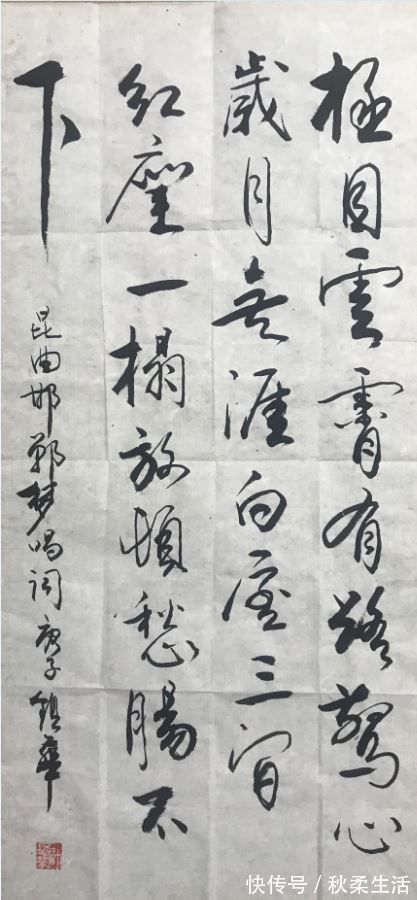 極目雲霄有路驚心
歲月無涯白屋三間
紅塵一榻放頓愁腸不
下
昆曲邯鄲梦唱词 庚子
快传号/秋柔生活